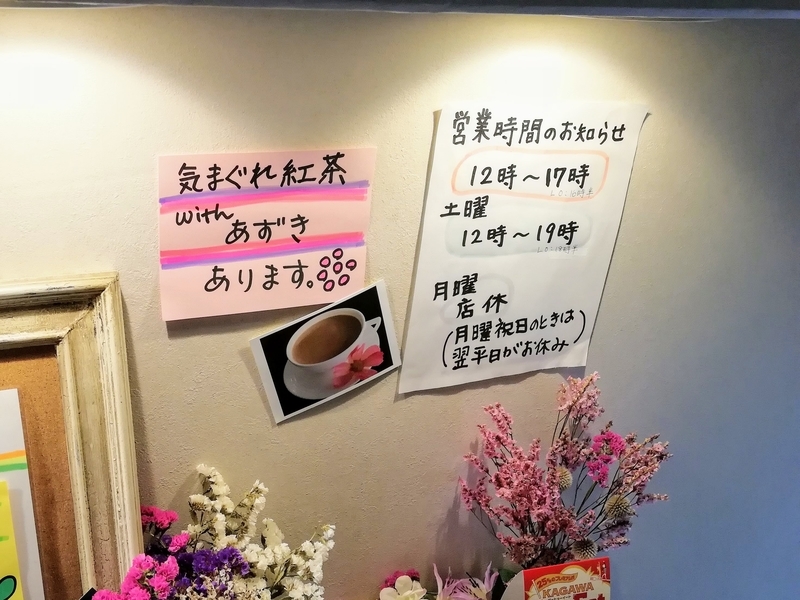 気まぐれ紅茶
with
あずき
あります。
営業時間のお知らせ
12時〜17時
土曜
12時〜19時
月曜
店休
(月曜祝日のときは
翌平日がお休み)
KAGAWA